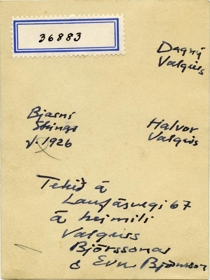 36883
Dagný
Valgüss
Bjarni
f. 1926
Halvor
Valgüss
Tekið á
Laufásvegi 67
á heimili
Valgüss
Björnssonar
& Evu Björnsson